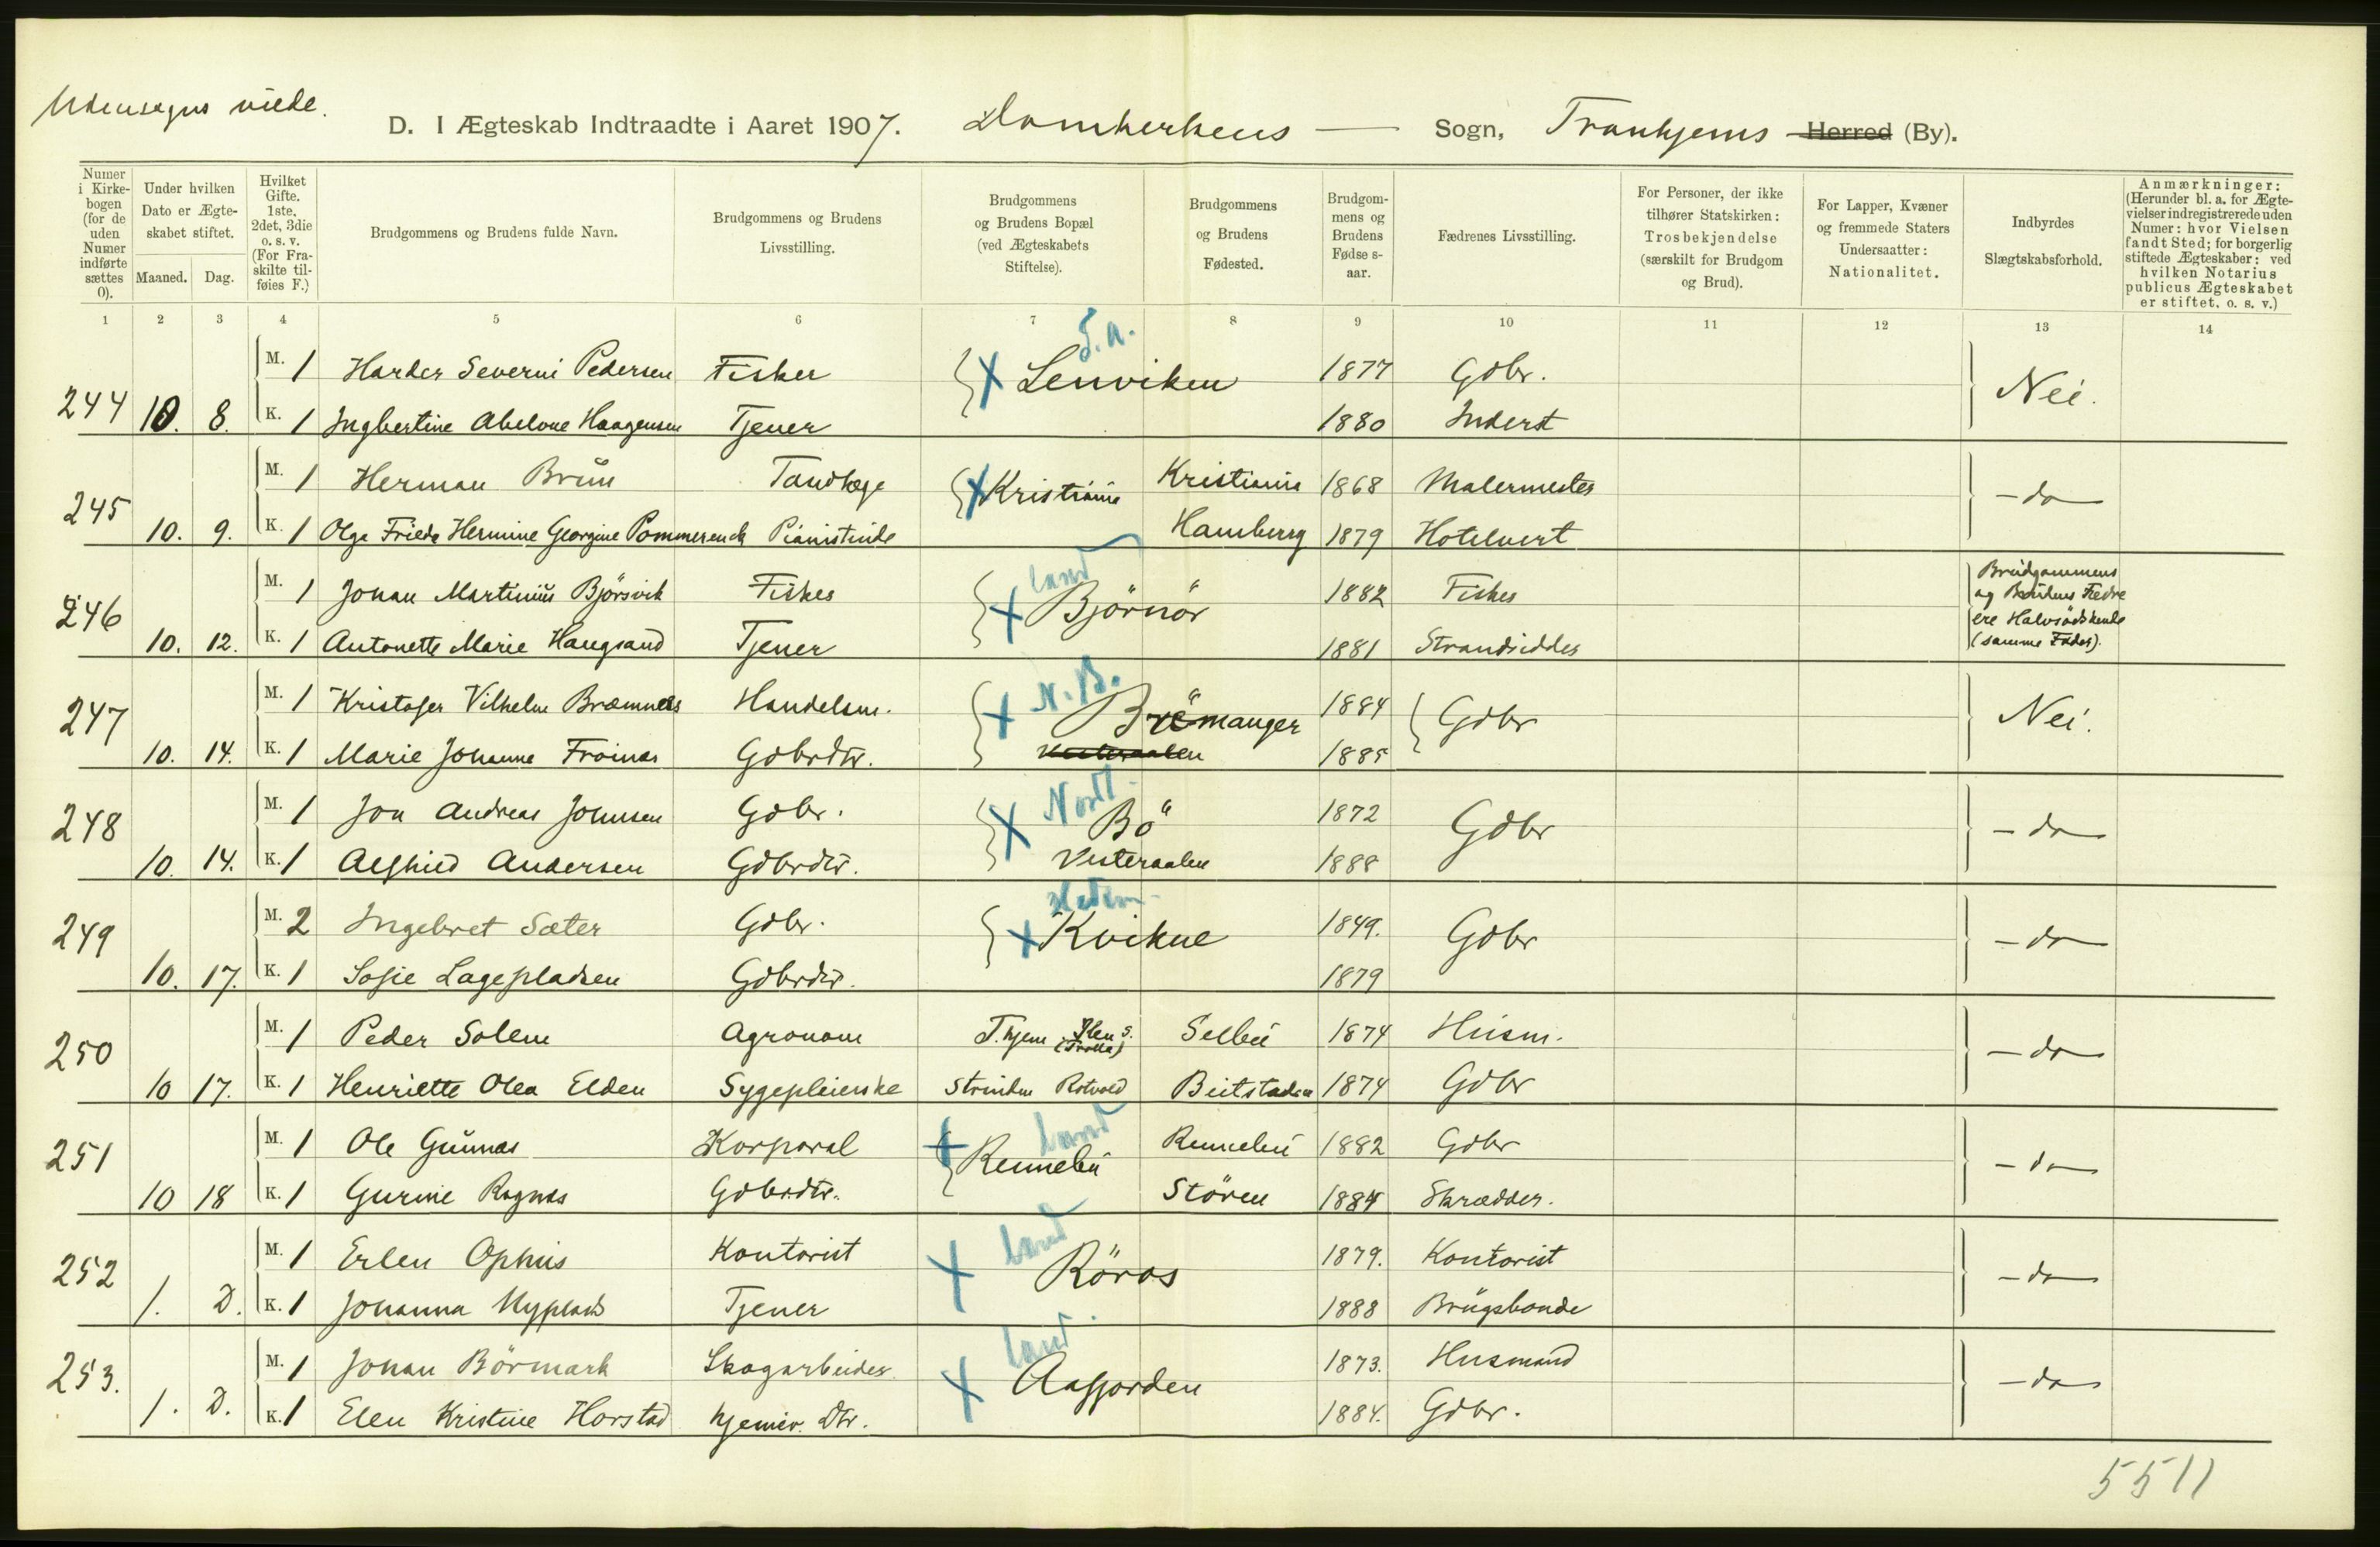 Udensogns viede.
D. I Ægteskab Indtraadte i Aaret 1907. Domkirkens — Sogn, Tronhjems Herred (By).
Numer i Kirkebogen (for de uden Numer indførte sættes 0).
Under hvilken Dato er Ægteskabet stiftet.
Maaned. Dag.
Hvilket Gifte. 1ste, 2det, 3die o. s. v. (For Fraskilte tilføies F.)
Brudgommens og Brudens fulde Navn.
Brudgommens og Brudens Livsstilling.
Brudgommens og Brudens Bopæl (ved Ægteskabets Stiftelse).
Brudgommens og Brudens Fødested.
Brudgommens og Brudens Fødselsaar.
Fædrenes Livsstilling.
For Personer, der ikke tilhører Statskirken: Trosbekjendelse (særskilt for Brudgom og Brud).
For Lapper, Kvæner og fremmede Staters Undersaatter: Nationalitet.
Indbyrdes Slægtskabsforhold.
Anmærkninger: (Herunder bl. a. for Ægtevielser indregistrerede uden Numer: hvor Vielsen fandt Sted; for borgerlig stiftede Ægteskaber: ved hvilken Notarius publicus Ægteskabet er stiftet, o. s. v.)
1 2 3 4 5 6 7 8 9 10 11 12 13 14
M. 1 Harder Severin Pedersen Fisker Lenviken 1877 Gdbr. Nei.
244 10. 8. K. 1 Ingbertine Abelone Haagensen Tjener 1880 Inderst
M. 1 Herman Brun Tandlæge Kristiania Kristiania 1868 Malermester — do —
245 10. 9. K. 1 Olga Frieda Hermine Georgine Pommerenck Pianistinde Hamburg 1879 Hotelvert
Land
M. 1 Johan Martinus Bjørsvik Fisker Björnör 1882 Fisker Brudgommens og Brudens Fædre ere Halvsødskende (samme Fader).
246 10. 12. K. 1 Antonette Marie Haugsand Tjener 1881 Strandsidder
N. B.
M. 1 Kristofer Vilhelm Bremnes Handelsm. Bremanger 1884 Gdbr Nei.
247 10. 14. K. 1 Marie Johanna Froinas Gdbrdtr. Vesteraalen 1885
Nordl.
M. 1 Jon Andreas Johnsen Gdbr. Bö 1872 Gdbr — do —
248 10. 14. K. 1 Alfhild Andersen Gdbrdtr. Vesteraalen 1888
Hedem
M. 2 Ingebret Sæter Gdbr. Kvikne 1849. Gdbr — do —
249 10. 17. K. 1 Sofie Lagepladsen Gdbrdtr. 1879
M. 1 Peder Solem Agronom T.hjem Ilen S. (Trolla) Selbu 1874 Husm. — do —
250 10 17. K. 1 Henriette Olea Elden Sygepleierske Strinden Rotvold Beitstaden 1874 Gdbr
Land
M. 1 Ole Gunnas Korporal Rennebu Rennebu 1882 Gdbr — do —
251 10 18 K. 1 Gurine Rognes Gdbrdtr. Stören 1884 Skrædder.
Land
M. 1 Erlen Ophus Kontorist Röros 1879. Kontorist — do —
252 1. D. K. 1 Johanna Nyplads Tjener 1888 Brugsbonde
Land
M. 1 Johan Börmark Skogarbeider Aafjorden 1873. Husmand — do —
253. 1. D. K. 1 Elen Kristine Horstad hjemv. Dtr. 1884. Gdbr.
5511